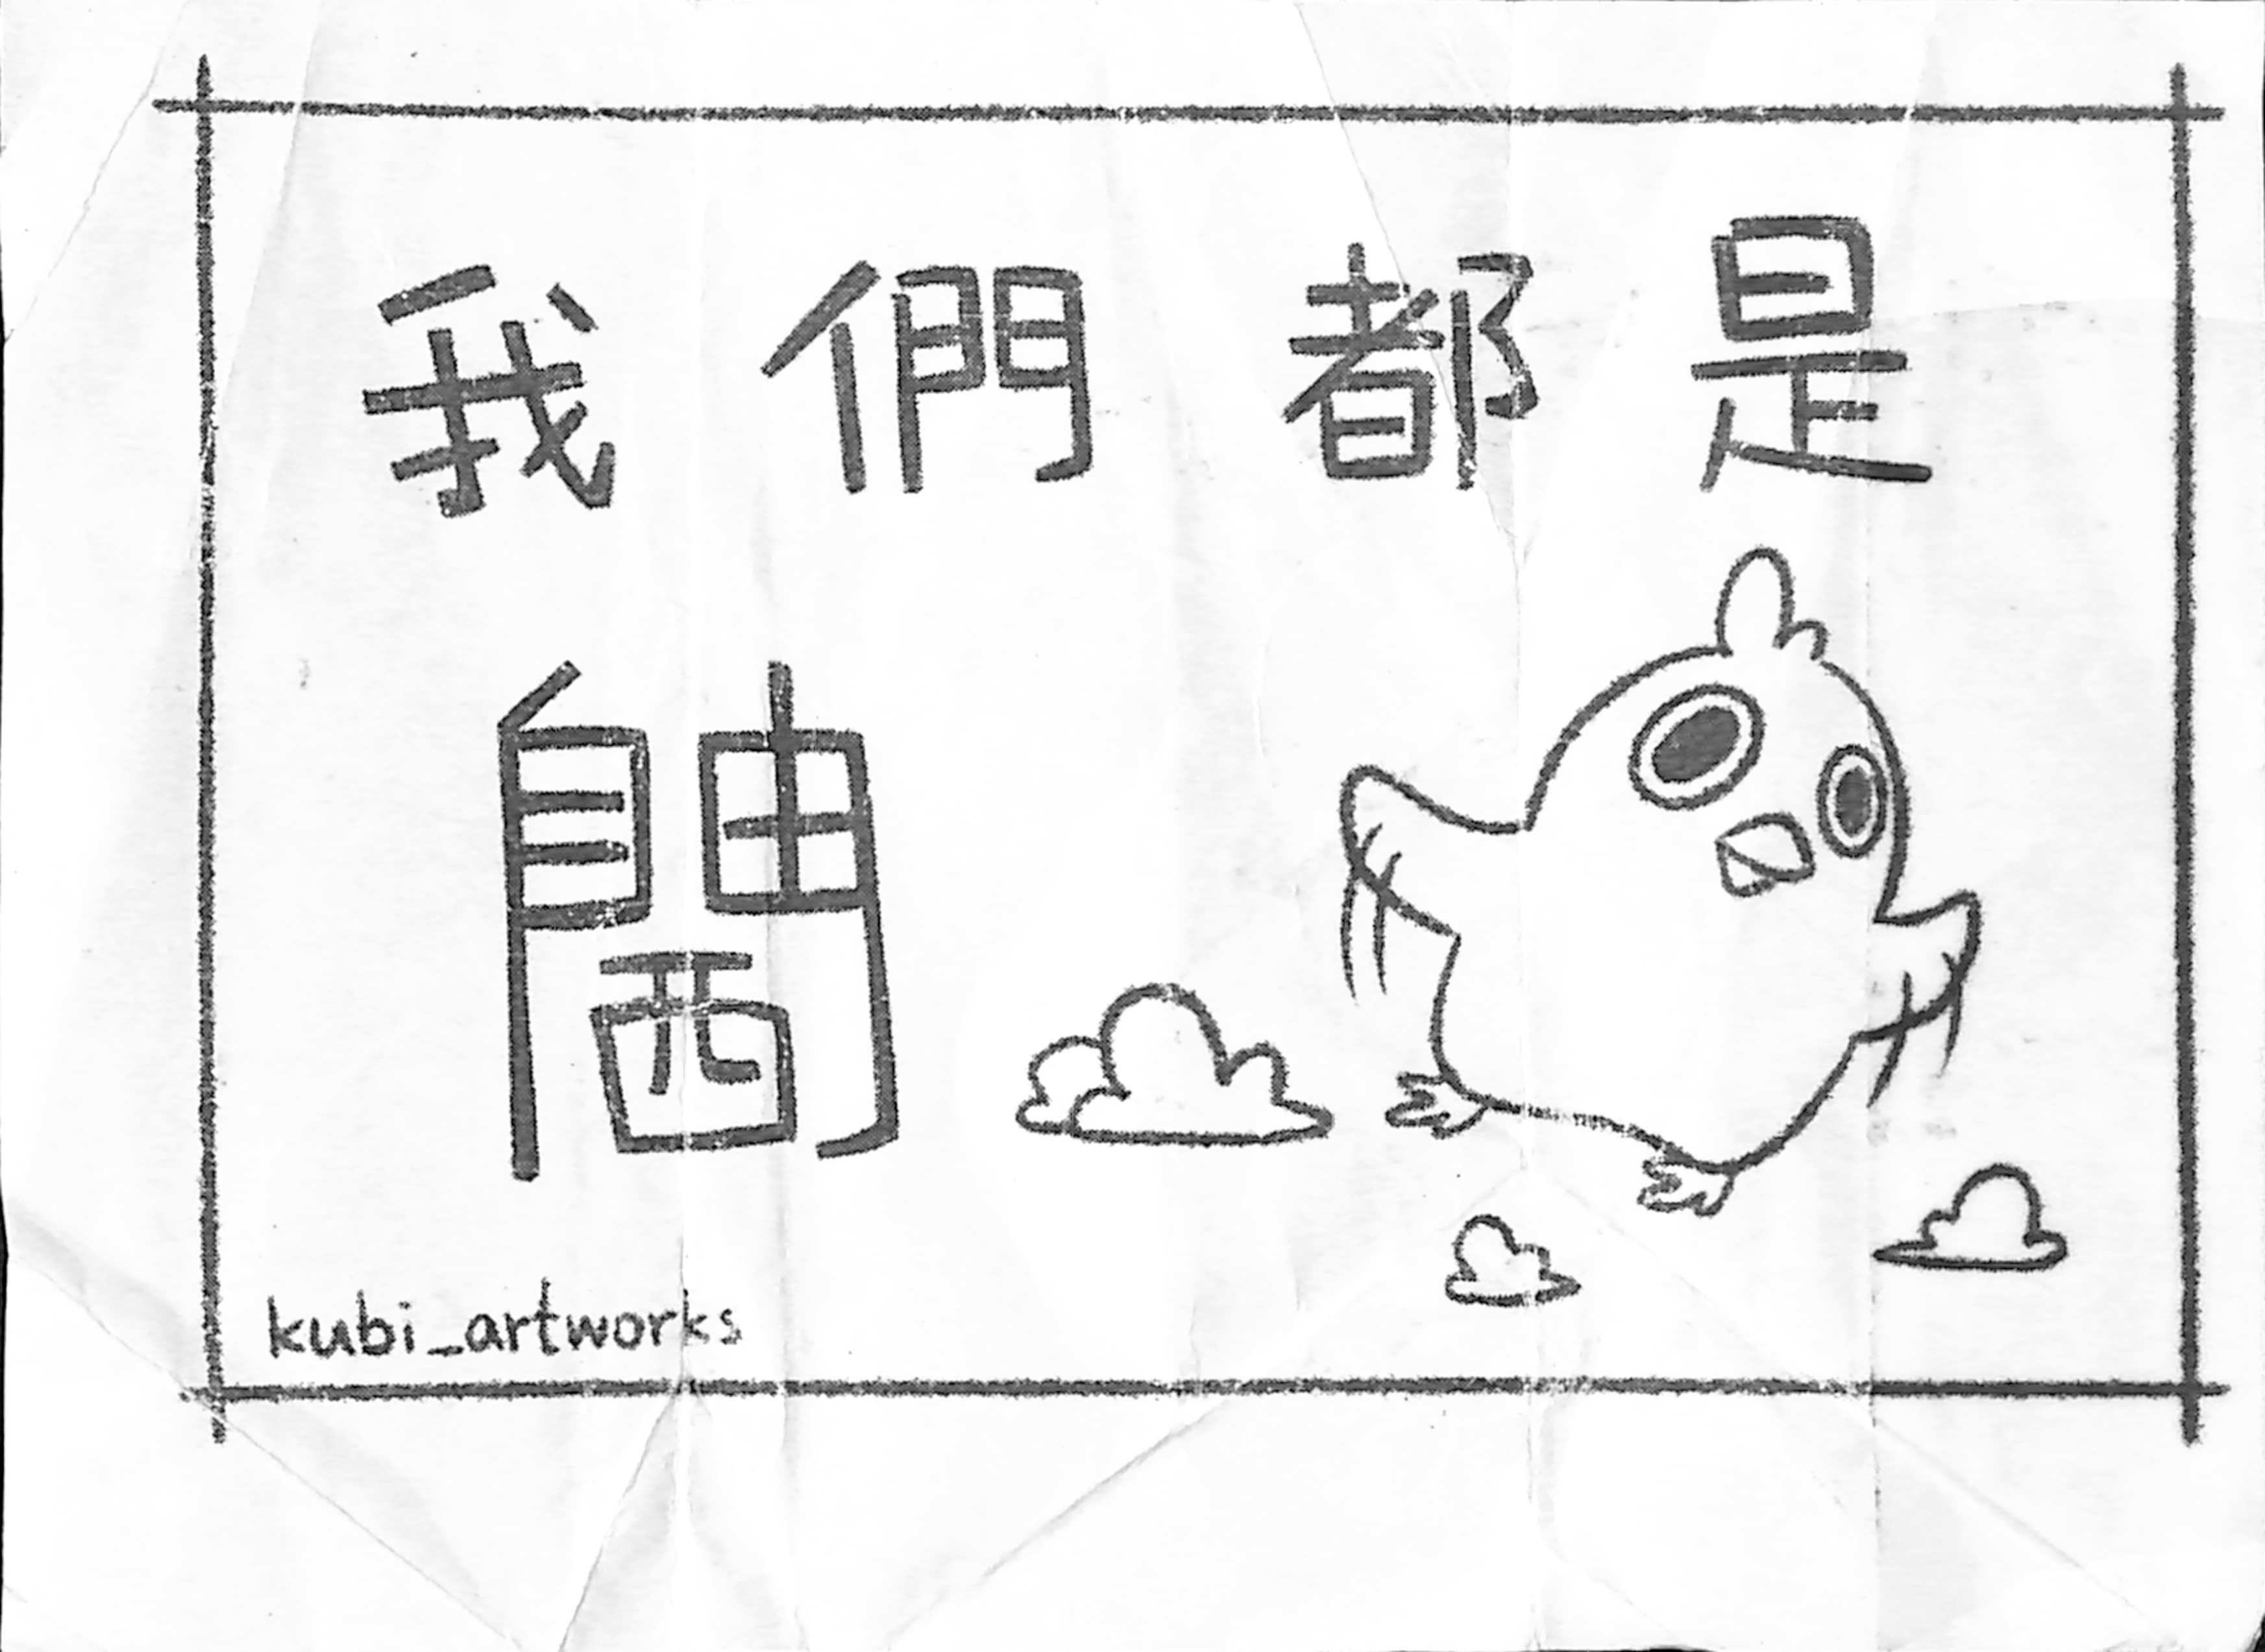 我們都是
自由閪
kubi_artworks